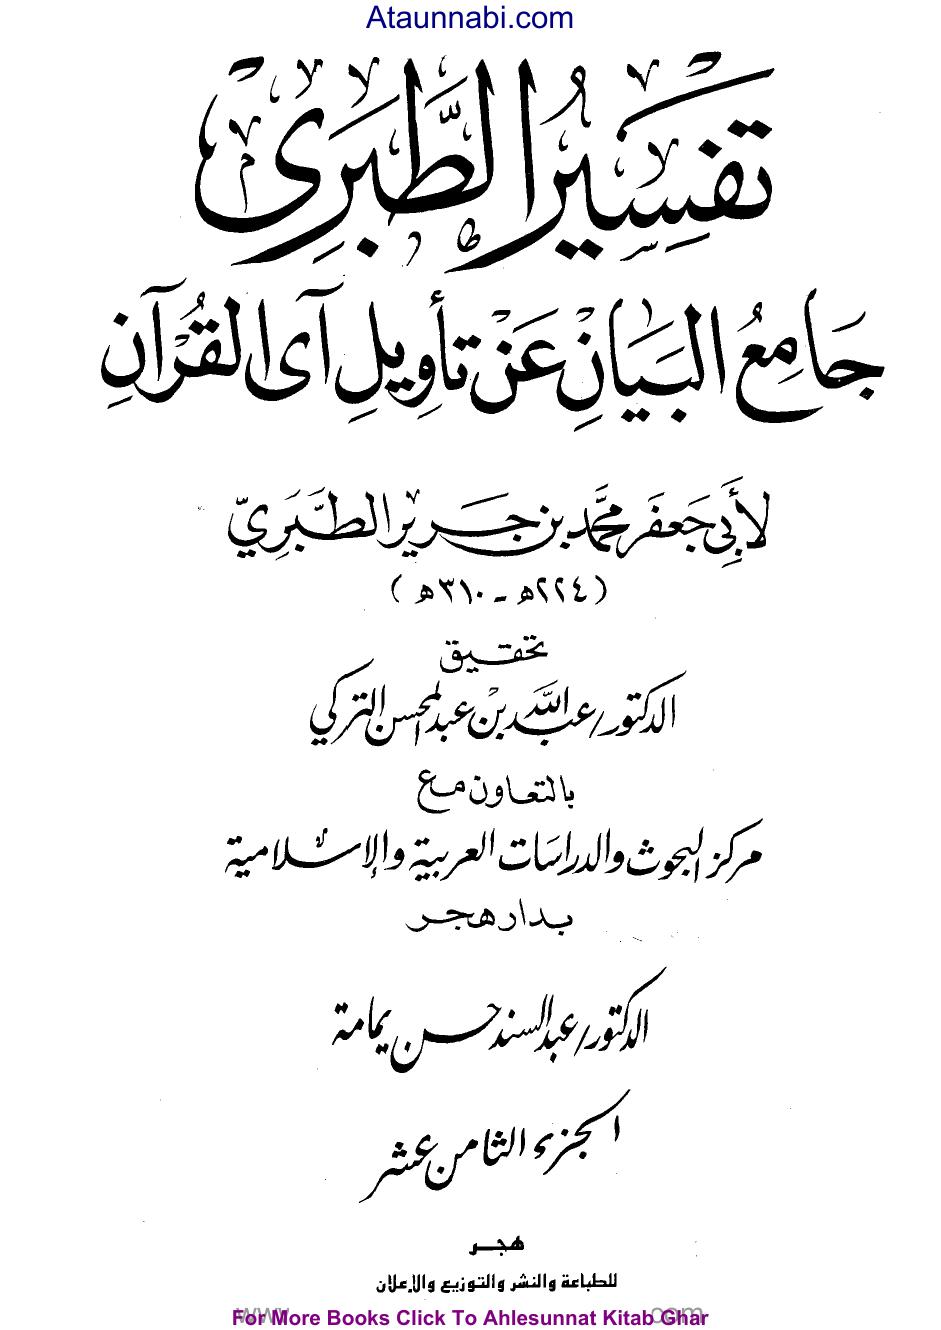 Ataunnabi.com
تفسير الطبري
جامع البيان عن تأويل آى القرآن
لأبي جعفر محمد بن جرير الطبري
(٢٢٤هـ - ٣١٠هـ)
تحقيق
الدكتور/ عبد الله بن عبد المحسن التركي
بالتعاون مع
مركز البحوث والدراسات العربية والإسلامية
بدار هجر
الدكتور/ عبد السند حسن يمامة
الجزء الثامن عشر
هجر
للطباعة والنشر والتوزيع والإعلان
For More Books Click To Ahlesunnat Kitab Ghar